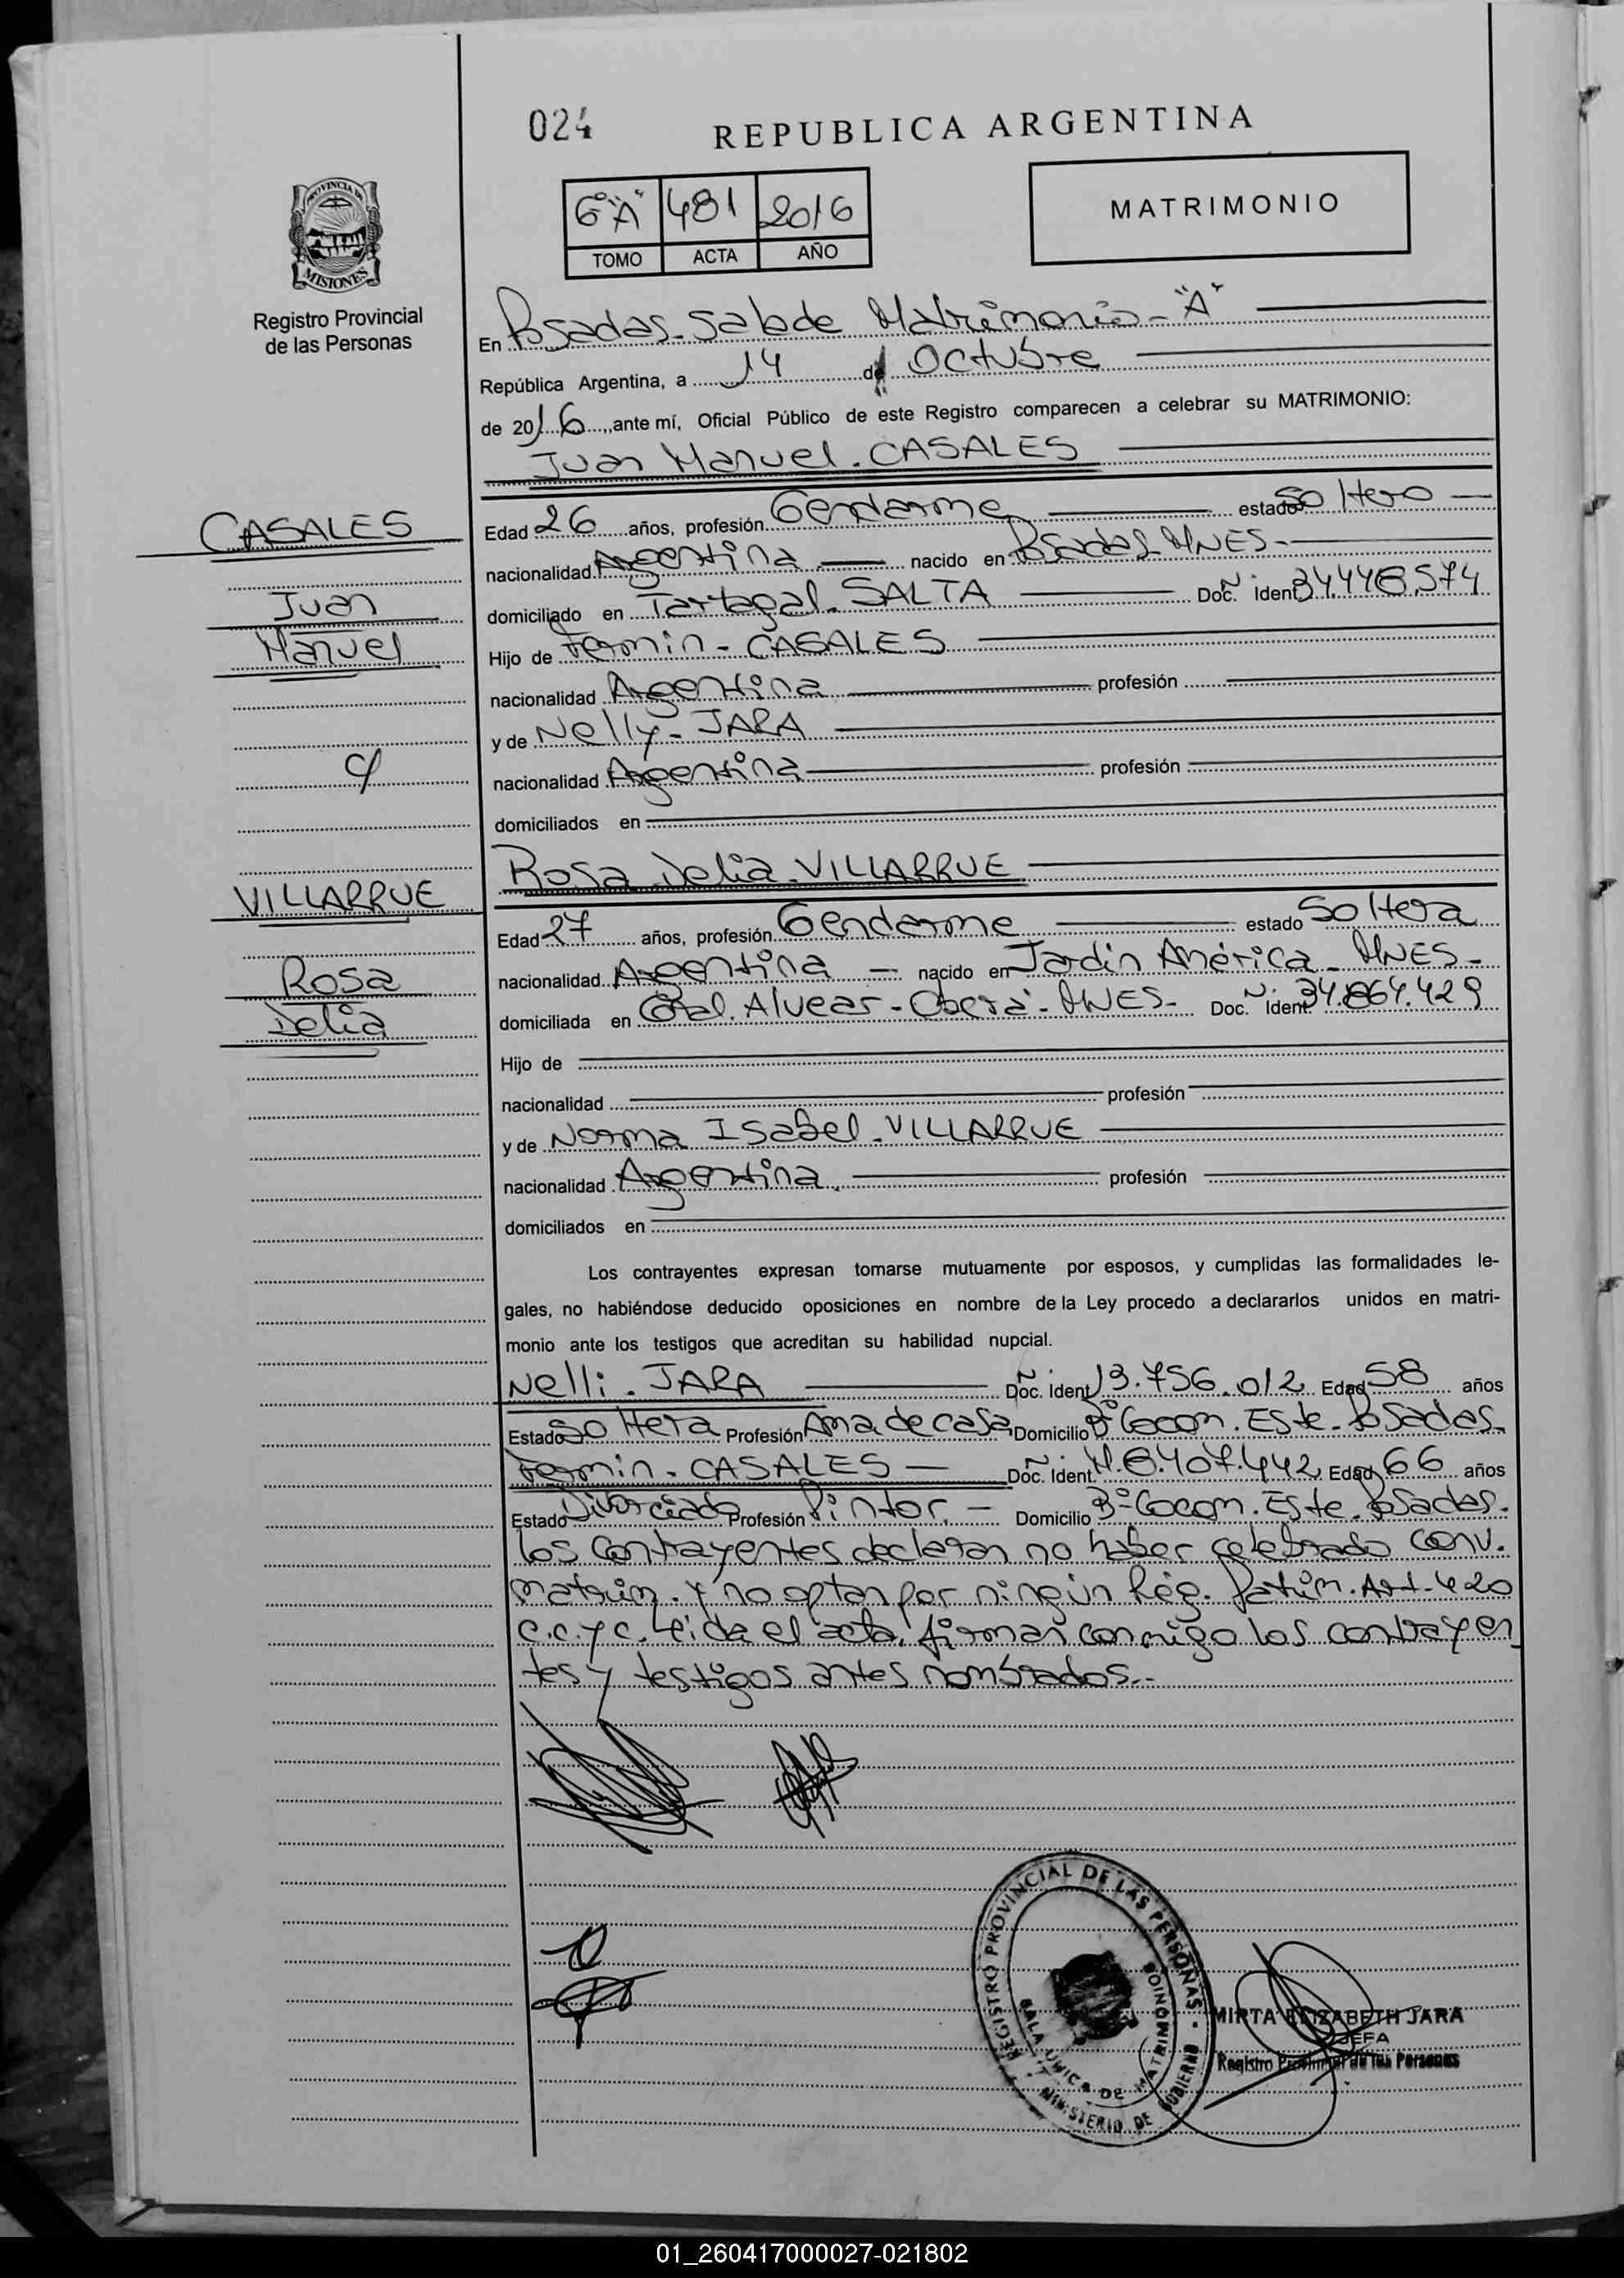 024
REPUBLICA ARGENTINA
PROVINCIA DE
MISIONES
Registro Provincial
de las Personas
6º"A" 481 2016
TOMO ACTA AÑO
MATRIMONIO
En Posadas - Sala de Matrimonio - "A"
República Argentina, a 14 de Octubre
de 2016, ante mí, Oficial Público de este Registro comparecen a celebrar su MATRIMONIO:
Juan Manuel - CASALES
CASALES
Juan
Manuel
c/
VILLARRUE
Rosa
Delia
Edad 26 años, profesión Gendarme estado Soltero
nacionalidad Argentina nacido en Posadas - MNES -
domiciliado en Tartagal - SALTA Doc. Nº Ident 34.448.574
Hijo de Fermin - CASALES
nacionalidad Argentina profesión
y de Nelly - JARA
nacionalidad Argentina profesión
domiciliados en
Rosa Delia - VILLARRUE
Edad 27 años, profesión Gendarme estado Soltera
nacionalidad Argentina nacido en Jardín América - MNES -
domiciliada en Gral. Alvear - Oberá - MNES - Doc. Nº Ident 34.864.429
Hijo de
nacionalidad profesión
y de Norma Isabel - VILLARRUE
nacionalidad Argentina profesión
domiciliados en
Los contrayentes expresan tomarse mutuamente por esposos, y cumplidas las formalidades le-
gales, no habiéndose deducido oposiciones en nombre de la Ley procedo a declararlos unidos en matri-
monio ante los testigos que acreditan su habilidad nupcial.
Nelli - JARA Doc. Ident 13.756.012 Edad 58 años
Estado Soltera Profesión Ama de casa Domicilio Bº Cocom. Este - Posadas.
Fermin - CASALES Doc. Ident M.8.407.442 Edad 66 años
Estado Divorciado Profesión Pintor. - Domicilio Bº Cocom. Este - Posadas.
los contrayentes declaran no haber celebrado conv.
matrim. y no optan por ningún Rég. Patrim. Art. 420
C.C. y C. Leida el acta, firman conmigo los contrayen
tes y testigos antes nombrados. -
REGISTRO PROVINCIAL DE LAS PERSONAS
SALA UNICA DE MATRIMONIOS
MINISTERIO DE GOBIERNO
MIRTA ELIZABETH JARA
JEFA
Registro Provincial de las Personas
01_260417000027-021802